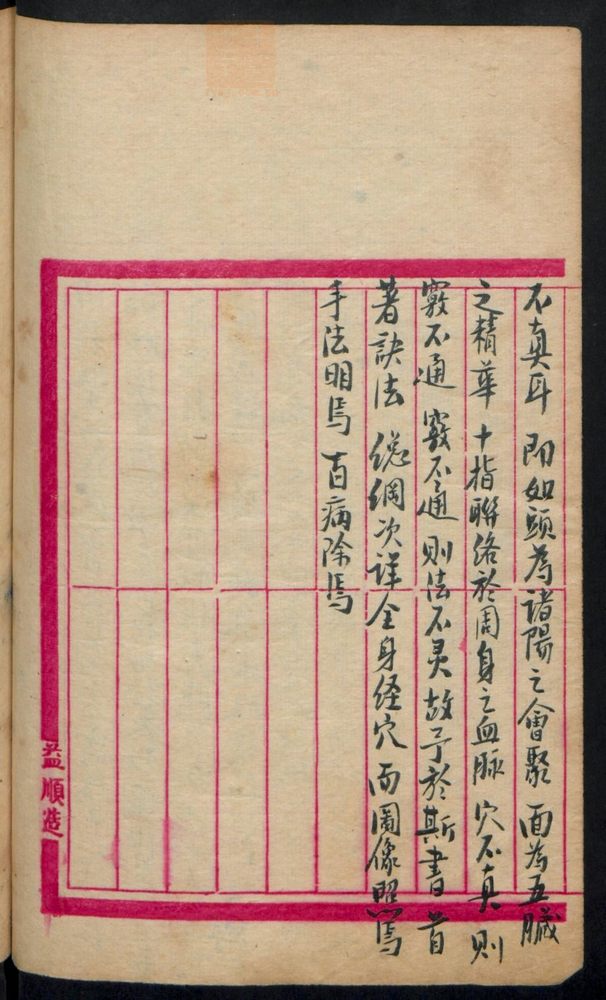 不真耳 即如頭為諸陽之會聚 面為五臟
之精華 十指聯絡於周身之血脉 穴不真則
竅不通 竅不通則法不灵故予於斯書首
著訣法 總綱次详全身经穴 而圖像照焉
手法明焉 百病除焉
益順造